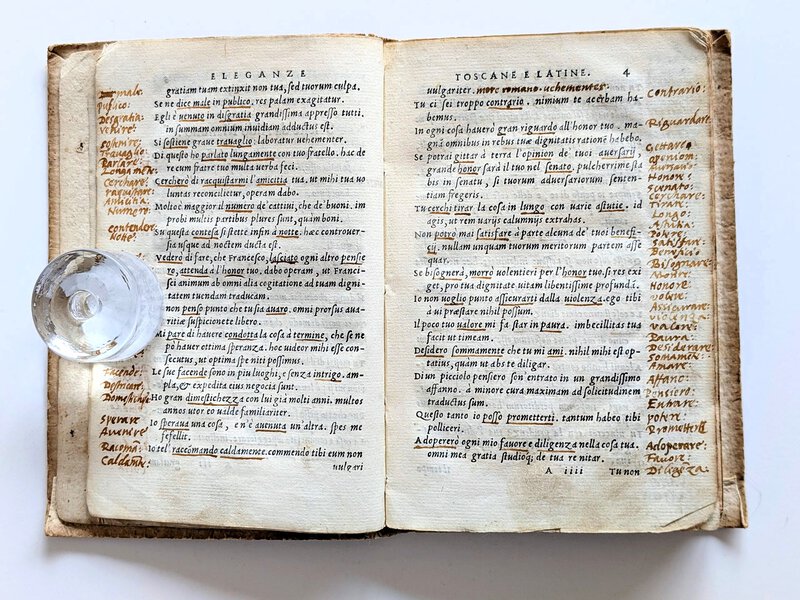 ELEGANZE
gratiam tuam extinxit non tua, sed tuorum culpa.
Se ne dice male in publico. res palam exagitatur.
Egli è venuto in disgratia grandissima appresso tutti.
in summam omnium inuidiam adductus est.
Si sostiene graue trauaglio. laboratur vehementer.
Di questo ho parlato lungamente con tuo fratello. hac de
re cum fratre tuo multa verba feci.
Cercherò di racquistarmi l'amicitia tua, ut mihi tua vo
luntas reconcilietur, operam dabo.
Molto è maggior il numero de' cattiui, che de' buoni. im
probi multis partibus plures sunt, quàm boni.
Su questa contesa si stette infin à notte. hac controuer-
sia usque ad noctem ducta est.
Vederò di fare, che Francesco, lasciato ogni altro pensie
ro, attenda à l'honor tuo. dabo operam, ut Franci-
sci animum ab omni alia cogitatione ad tuam digni
tatem tuendam traducam.
non penso punto che tu sia auaro. omni prorsus aua-
ritiæ suspicione te libero.
Mi pare di hauere condotta la cosa à termine, che se ne
pò hauer ottima speranza. hoc uideor mihi esse con-
secutus, ut optima spe niti possimus.
Le sue facende sono in piu luoghi, e senza intrigo. am-
pla, & expedita eius negocia sunt.
Ho gran dimestichezza con lui già molti anni. multos
annos utor eo valde familiariter.
Io speraua una cosa, e n'è auenuta un'altra. spes me
fefellit.
Io tel' raccomando caldamente. commendo tibi eum non
uulgari
male.
Publico:
Desgratia:
venire:
sostenire:
Trauaglio:
Parlare:
Longamente:
Cercharere:
racquistare:
Amicitia:
Numero:
contendere:
Notte:
Facende:
Destricare:
Domestichezza
Sperare
Auenire
Racomā:
Caldamēte:
TOSCANE E LATINE. 4
uulgariter. more romano. uehementer.
Tu ci sei troppo contrario. nimium te acerbam ha
bemus.
In ogni cosa hauerò gran riguardo all'honor tuo. ma-
gna omnibus in rebus tuæ dignitatis ratione habebo.
Se potrai gittar à terra l'opinion de' tuoi auersarij,
grande honor sarà il tuo nel senato. pulcherrime sta
bis in senatu, si tuorum aduersariorum senten-
tiam fregeris.
Tu cerchi tirar la cosa in lungo con uarie astutie. id
agis, ut rem uarijs calumnijs extrahas.
Non potrò mai satisfare à parte alcuna de' tuoi benefi-
cij. nullam unquam tuorum meritorum partem asse
quar.
Se bisognerà, morrò volentieri per l'honor tuo. si res exi
get, pro tua dignitate uitam libentissime profundā.
Io non uoglio punto assicurarti dalla uiolenza. ego tibi
à ui præstare nihil possum.
Il poco tuo ualore mi fa star in paura. imbecillitas tua
facit ut timeam.
Desidero sommamente che tu mi ami. nihil mihi est op-
tatius, quàm ut abs te diligar.
Di un picciolo pensiero son entrato in un grandissimo
affanno. à minore cura maximam ad solicitudinem
traductus sum.
Questo tanto io posso prometterti. tantum habeo tibi
polliceri.
Adopererò ogni mio fauore e diligenza nella cosa tua.
omni mea gratia studioq; de tua re nitar.
A iiii Tu non
Contrario:
Riguardare
Gettare:
openiom:
Honor:
Sunato:
Cerchare:
Tirare:
Longo:
Astutia:
Potere:
Satisfar:
Beneficio
Bisognare:
Morire:
Honore:
volere:
Assicurare
valere:
Paura:
Desiderare:
Somamēte:
Amare:
Afano:
Pensiero:
Entrare:
potere:
Promettere
Adoperare:
Fauore:
Diligēza: